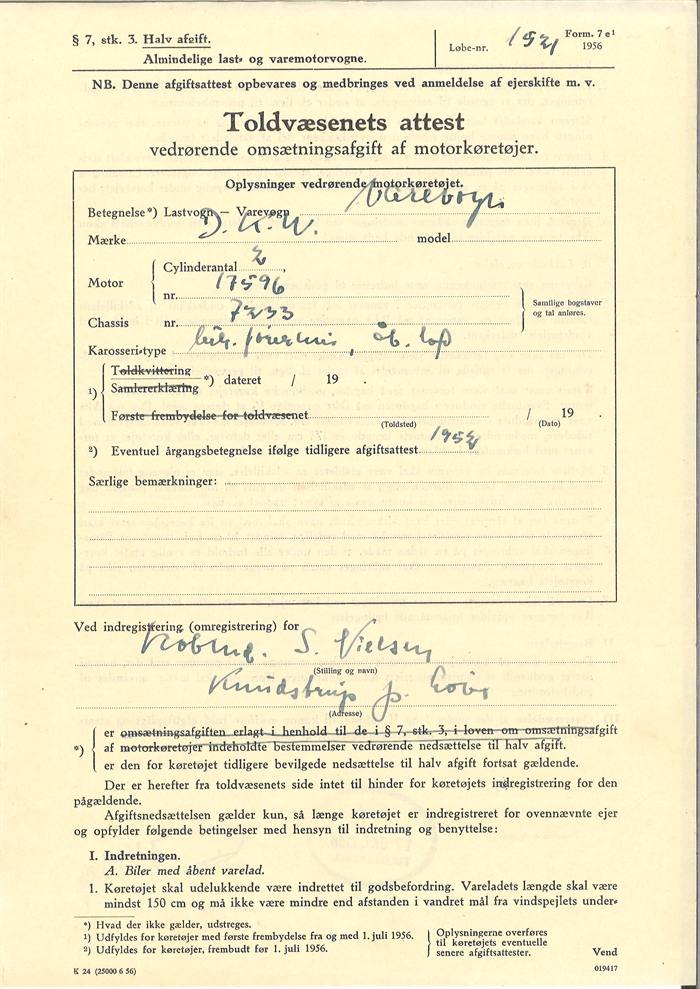 § 7, stk. 3. Halv afgift.
Almindelige last- og varemotorvogne.
Løbe-nr. 1521
Form. 7 e¹
1956
NB. Denne afgiftsattest opbevares og medbringes ved anmeldelse af ejerskifte m. v.
Toldvæsenets attest
vedrørende omsætningsafgift af motorkøretøjer.
Oplysninger vedrørende motorkøretøjet.
Betegnelse*) Lastvogn — Varevogn Varevogn
Mærke D. K. W. model
Motor
Cylinderantal 2,
nr. 17596
Chassis nr. 7233
Samtlige bogstaver
og tal anføres.
Karosseri-type luk. førerhus, åb. lad
¹) Toldkvittering
Samlererklæring *) dateret / 19 .
Første frembydelse for toldvæsenet / 19 .
(Toldsted) (Dato)
²) Eventuel årgangsbetegnelse ifølge tidligere afgiftsattest 1952
Særlige bemærkninger:
Ved indregistrering (omregistrering) for
Købmd. S. Nielsen
(Stilling og navn)
Knudstrup p.
(Adresse)
*) er omsætningsafgiften erlagt i henhold til de i § 7, stk. 3, i loven om omsætningsafgift
af motorkøretøjer indeholdte bestemmelser vedrørende nedsættelse til halv afgift.
er den for køretøjet tidligere bevilgede nedsættelse til halv afgift fortsat gældende.
Der er herefter fra toldvæsenets side intet til hinder for køretøjets indregistrering for den
pågældende.
Afgiftsnedsættelsen gælder kun, så længe køretøjet er indregistreret for ovennævnte ejer
og opfylder følgende betingelser med hensyn til indretning og benyttelse:
I. Indretningen.
A. Biler med åbent varelad.
1. Køretøjet skal udelukkende være indrettet til godsbefordring. Vareladets længde skal være
mindst 150 cm og må ikke være mindre end afstanden i vandret mål fra vindspejlets under-
*) Hvad der ikke gælder, udstreges.
¹) Udfyldes for køretøjer med første frembydelse fra og med 1. juli 1956.
²) Udfyldes for køretøjer, frembudt før 1. juli 1956.
Oplysningerne overføres
til køretøjets eventuelle
senere afgiftsattester.
Vend
K 24 (25000 6 56)
019417